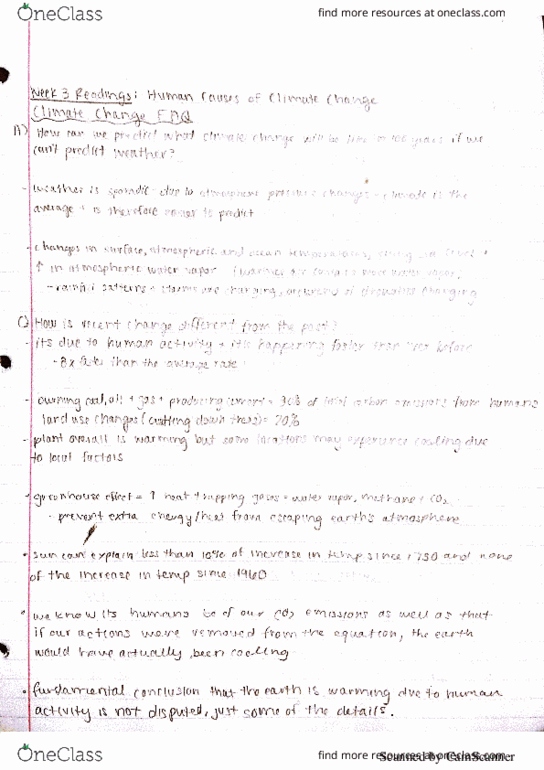 OneClass
find more resources at oneclass.com
Week 3 Readings: Human Causes of Climate Change
Climate Change FAQ
A) How can we predict what climate change will be like in 100 years if we
can't predict weather?
- weather is sporadic due to atmosphere pressure changes - climate is the
average + is therefore easier to predict
- changes in surface, atmospheric and ocean temperatures, rising sea level +
↑ in atmospheric water vapor (warmer air contains more water vapor)
- rainfall patterns + storms are changing, of droughts changing
Q) How is recent change different from the past?
- its due to human activity + it's happening faster than ever before
- 8x faster than the average rate
- burning coal, oil + gas + producing cement = % of total carbon emissions from humans
land use changes (cutting down trees) = 20%
- plant overall is warming but some locations may experience cooling due
to local factors
• greenhouse effect = ↑ heat trapping gases - water vapor, methane + CO2
- prevent extra energy/heat from escaping earth's atmosphere
• sun can explain less than 10% of increase in temp since 1750 and none
of the increase in temp since 1960
• we know its humans bc of our CO2 emissions as well as that
if our actions were removed from the equation, the earth
would have actually been cooling
• fundamental conclusion that the earth is warming due to human
activity is not disputed, just some of the details.
OneClass
find more resources at oneclass.com
Scanned by CamScanner